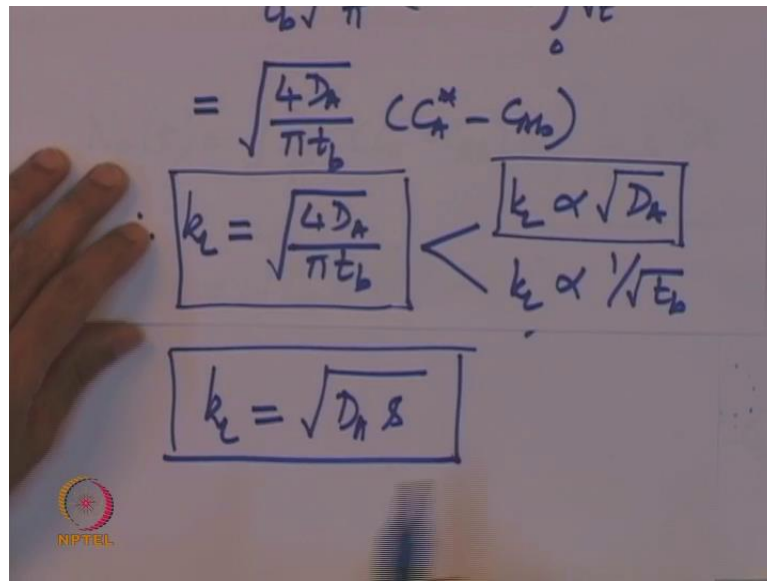 = √(4D_A / πt_b) (C_A* - C_Ab)
∴ k_L = √(4D_A / πt_b) < k_L ∝ √D_A
k_L ∝ 1/√t_b
k_L = √(D_A s)
NPTEL